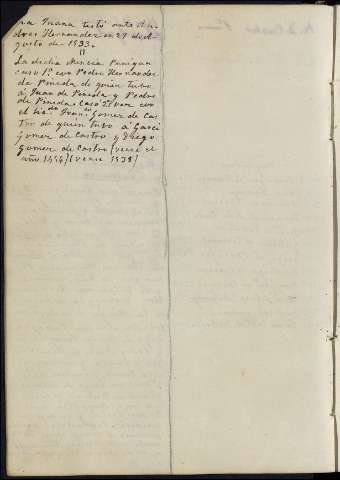 ña Juana testó ante An-
dres Hernandez en 27 de A-
gosto de 1533.
La dicha Mencia Paniagua
caso 1º con Pedro Hernandez
de Pineda de quien tubo
á Juan de Pineda y Pedro
de Pineda. Caso 2ª vez con
el Francº Gomez de Cas-
tro de quien tubo á Garci
Gomez de Castro y Diego
Gomez de Castro (vease el
año 1554) (vease 1538)